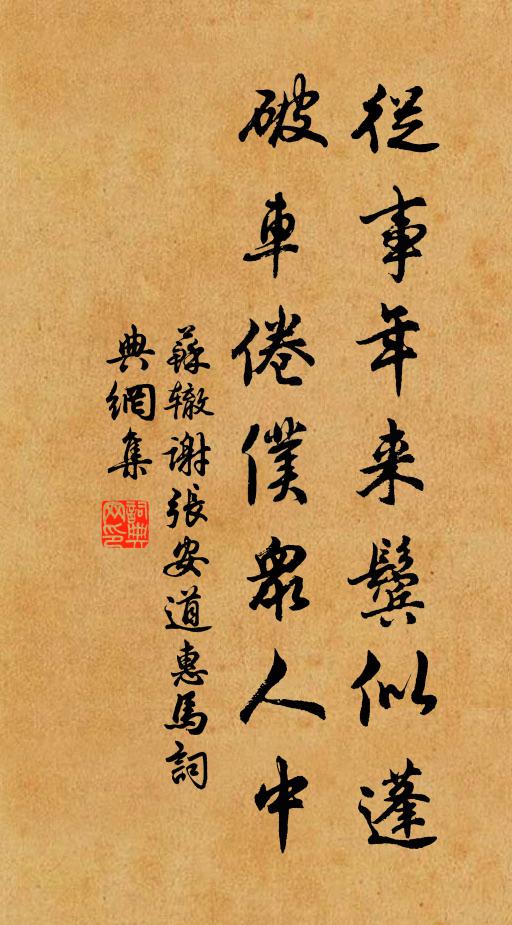 從事年来鬓似蓬
破車倦僕衆人中
蘇辙謝張安道惠馬詞
典網集
詞典
网印